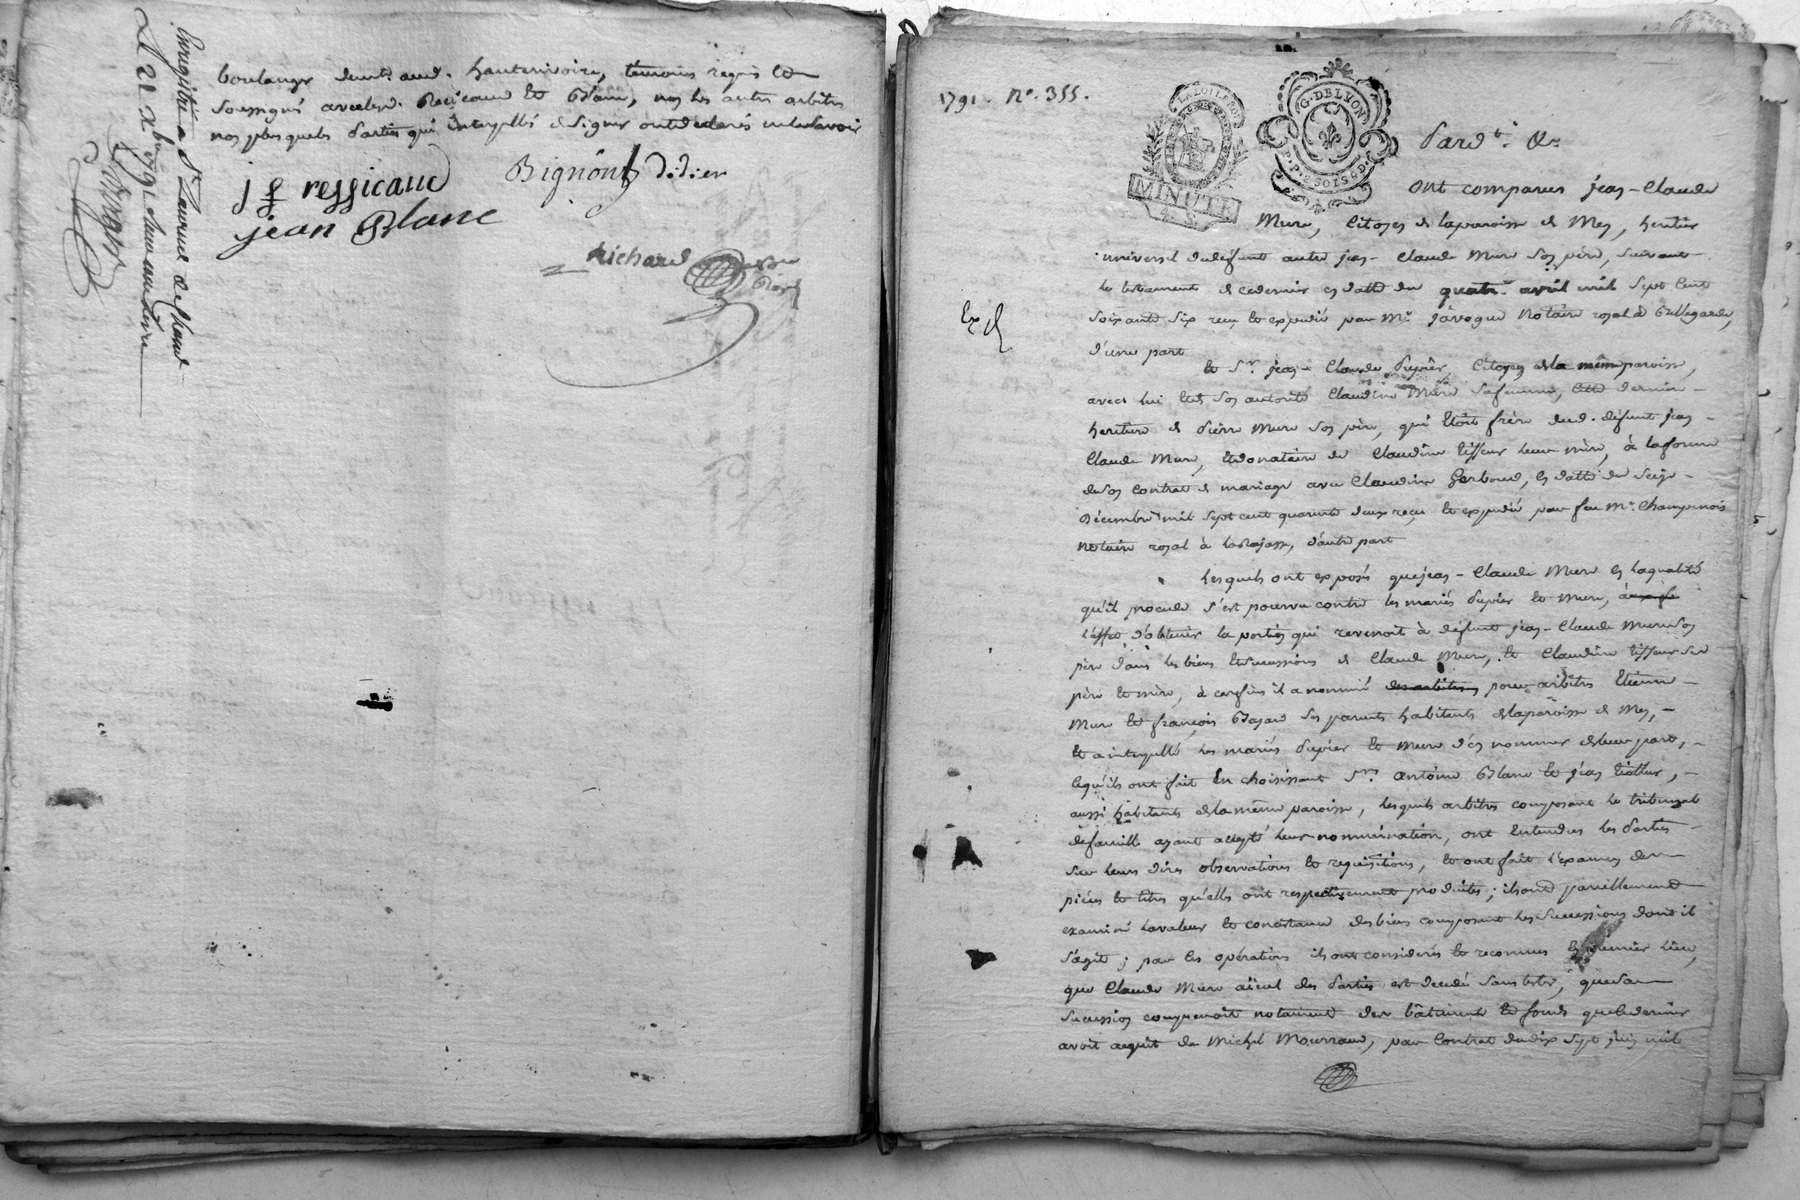 boulanger demt. aud. hauterivoire, temoins requis &
soussignés avecled. Ressicaud et Blanc, non les autres arbitres
non plus que les parties qui interpellés de signer ont déclarés ne le savoir
j f ressicaud
Bignont didier
jean Blanc
Richard
Enregistré a St Laurent de Chamd
Le 21 Xbre 1791
1791. No. 355.
LA LOI LE ROI
MINUTE
4. S.
G. DE LYON
P. P. 2 SOLS 6 D.
Pard.t &c
Ont comparus jean-Claude
Mure, Citoyen de la paroisse de Mey, heritier
universel du deffunt autre jean-Claude Mure son père, suivant
le testament de ce dernier en datte du quatre avril mil sept cent
soixante six reçu et expedié par Me. javogue Notaire royal à Bellegarde,
d'une part
Exp
et Sr. jean-Claude Pupier, Citoyen de la même paroisse,
avec lui et de son autorité Claudine Mure sa femme, cette derniere
heritiere de Pierre Mure son père, qui étoit frère dud. défunt jean-
Claude Mure, et donataire de Claudine tisseur leur mère, à la forme
de son contrat de mariage avec Claudine Gerboud, en datte du seize
Décembre mil sept cent quarante deux reçu et expedié par feu Me. Champenois
notaire royal à la Rajasse, d'autre part
Lesquels ont exposés que jean-Claude Mure en la qualité
qu'il procede s'est pourvu contre les mariés Pupier et Mure, à
l'effet d'obtenir la portion qui revenoit à défunt jean-Claude Mure son
père dans les biens et sucessions de Claude Mure, et Claudine tisseur ses
père et mère, à ces fins il a nommé des arbitres pour arbitres Etienne
Mure et françois Bajard ses parents habitants de la paroisse de Mey,
et a interpellé les mariés Pupier et Mure d'en nommer de leur part,
ce qu'ils ont fait En choisissant Srs antoine Blanc et jean
aussi habitants de la même paroisse, lesquels arbitres composant le tribunal
de famille ayant accepté leur nomination, ont entendus les parties
sur leurs dires observations et requisitions, et ont fait l'examen des
pièces et titres qu'elles ont respectivement produites; ils ont pareillement
examiné la valeur et consistance des biens composant les sucessions dont il
s'agit; par les opérations ils ont considerés et reconnus En premier lieu,
que Claude Mure aïeul des parties est decedé sans tester, que sa
sucession comprenoit notament des bâtiments et fonds que le dernier
avoit acquit de Michel Mourraud, par contrat du dix sept juin mil